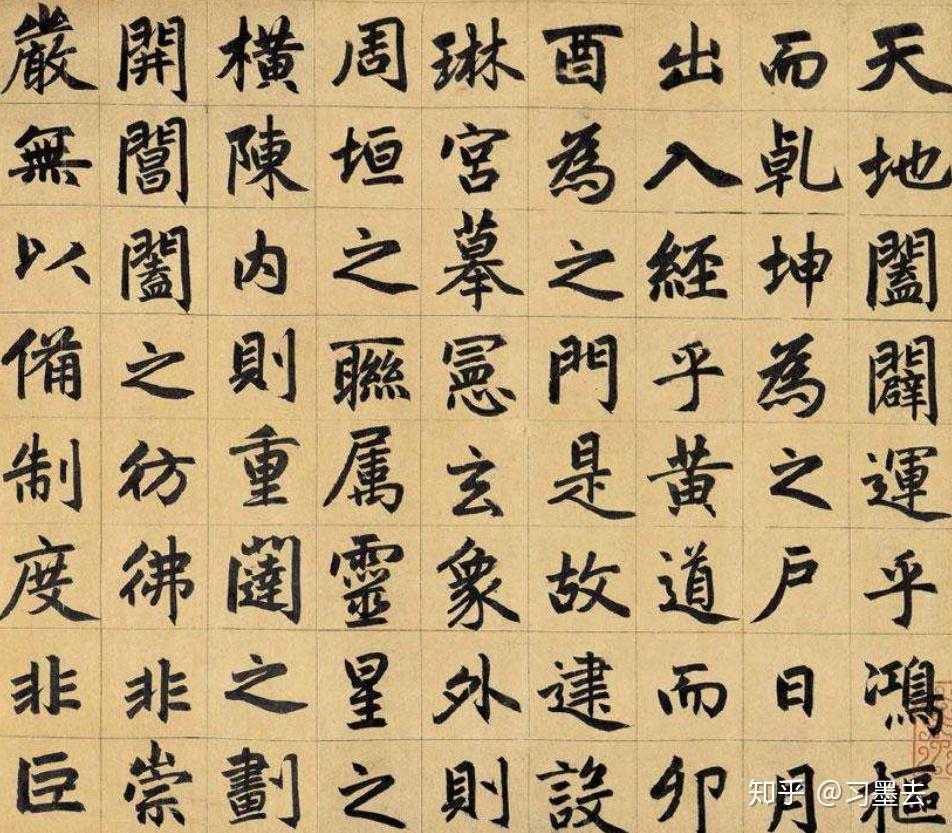 天地闔闢運乎鴻樞
而乹坤為之戶日月
出入經乎黃道而卯
酉為之門是故建設
琳宮摹憲玄象外則
周垣之聯属靈星之
橫陳内則重闥之劃
開閶闔之彷彿非崇
嚴無以備制度非巨
知乎 @习墨去